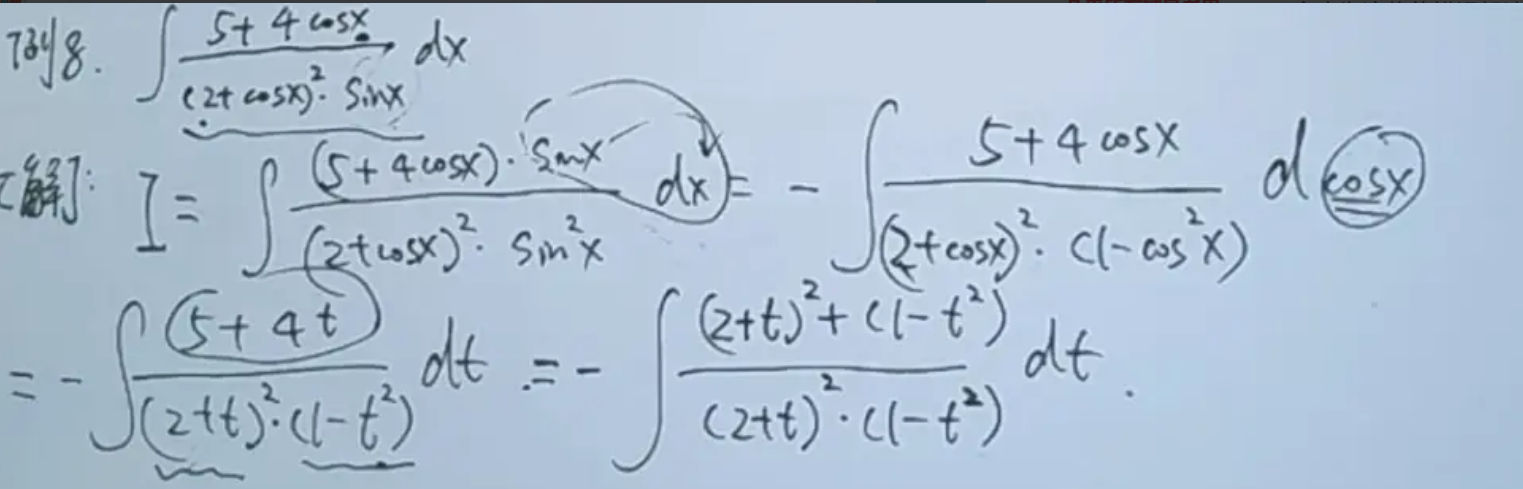 例8. ∫ (5+4cosx)/((2+cosx)²·sinx) dx
[解]: I = ∫ ((5+4cosx)·sinx)/((2+cosx)²·sin²x) dx = - ∫ (5+4cosx)/((2+cosx)²·(1-cos²x)) d cosx
= - ∫ (5+4t)/((2+t)²·(1-t²)) dt = - ∫ ((2+t)²+(1-t²))/((2+t)²·(1-t²)) dt.